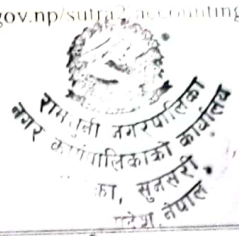 gov.np/sutra2.accounting
नगरपालिका
नगर कार्यपालिकाको कार्यालय
का, सुनसरी
नेपाल